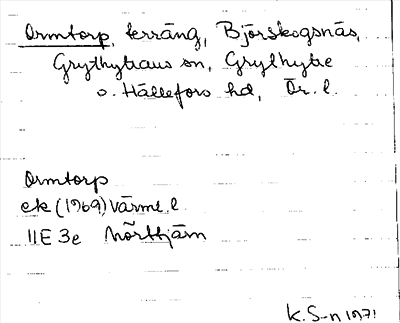 Ormtorp, terräng, Björskogsnäs,
Grythyttans sn, Grythytte
o. Hällefors hd, Ör. l.
Ormtorp
ek (1969) Värml. l.
11E 3e Mörttjärn
K. S-n 1971